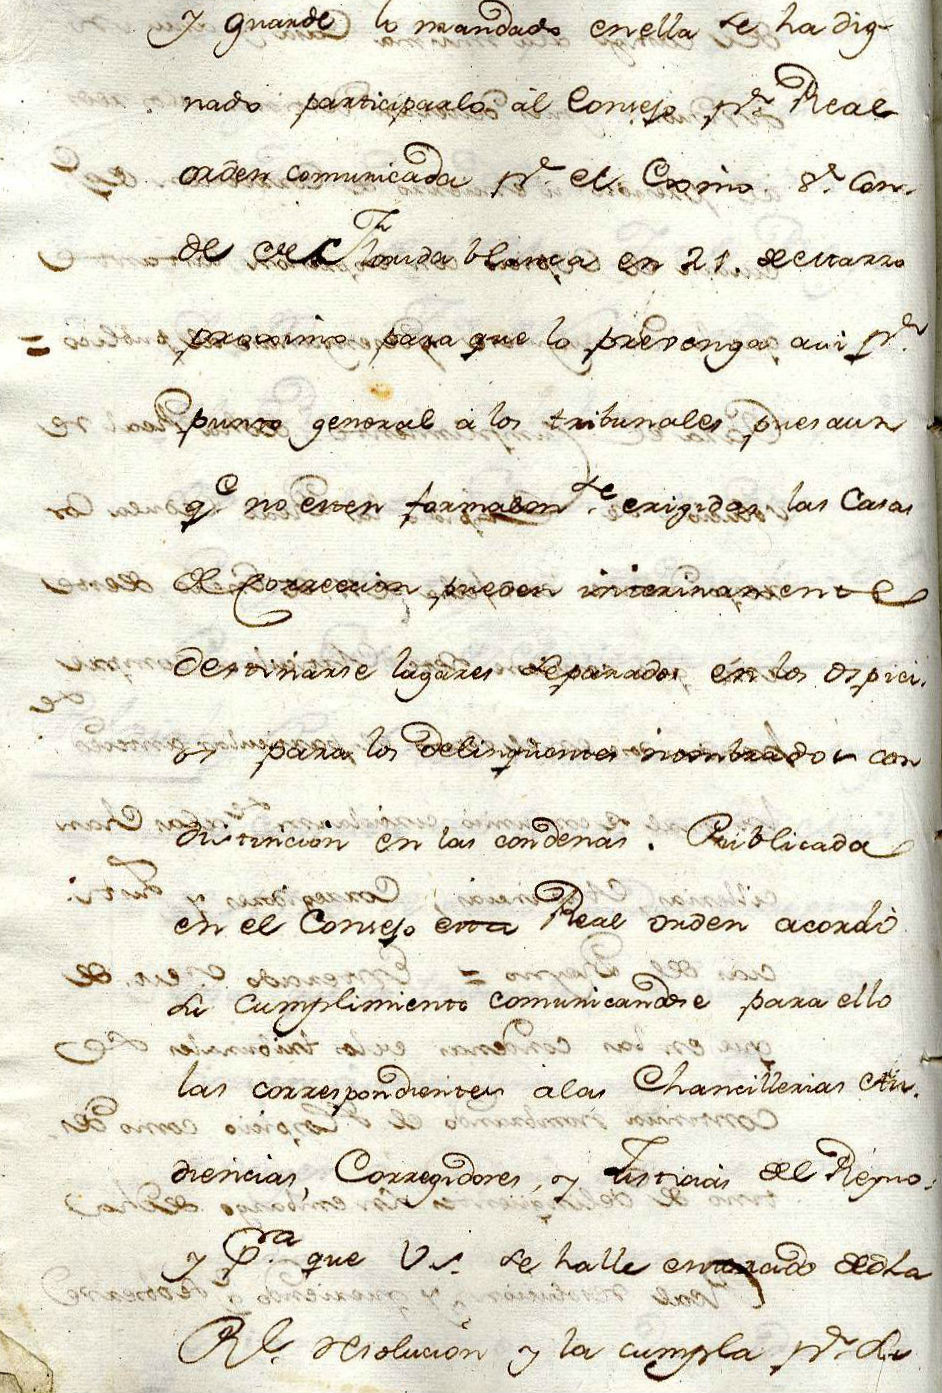 y guarde lo mandado en ella se ha dig-
nado participarlo al Consejo pr. Real
orden comunicada pr. el Exmo. Sr. Con-
de de Florida blanca en 21. de Marzo
proximo para que lo prevenga asi pr.
punto general á los tribunales pues aun
qe. no esten formalmte. erigidas las Casas
de Correccion, pueden interinamente
destinarse lugares separados en los ospici-
os para los delinquentes nombrados con
distincion en las condenas. Publicada
en el Consejo esta Real orden acordó
su cumplimiento comunicandose para ello
las correspondientes a las Chancillerias Au-
diencias, Corregidores, y Justicias del Reyno.
y pra. que V.S. se halle enterado de dha
Rl. resolucion y la cumpla pr. su